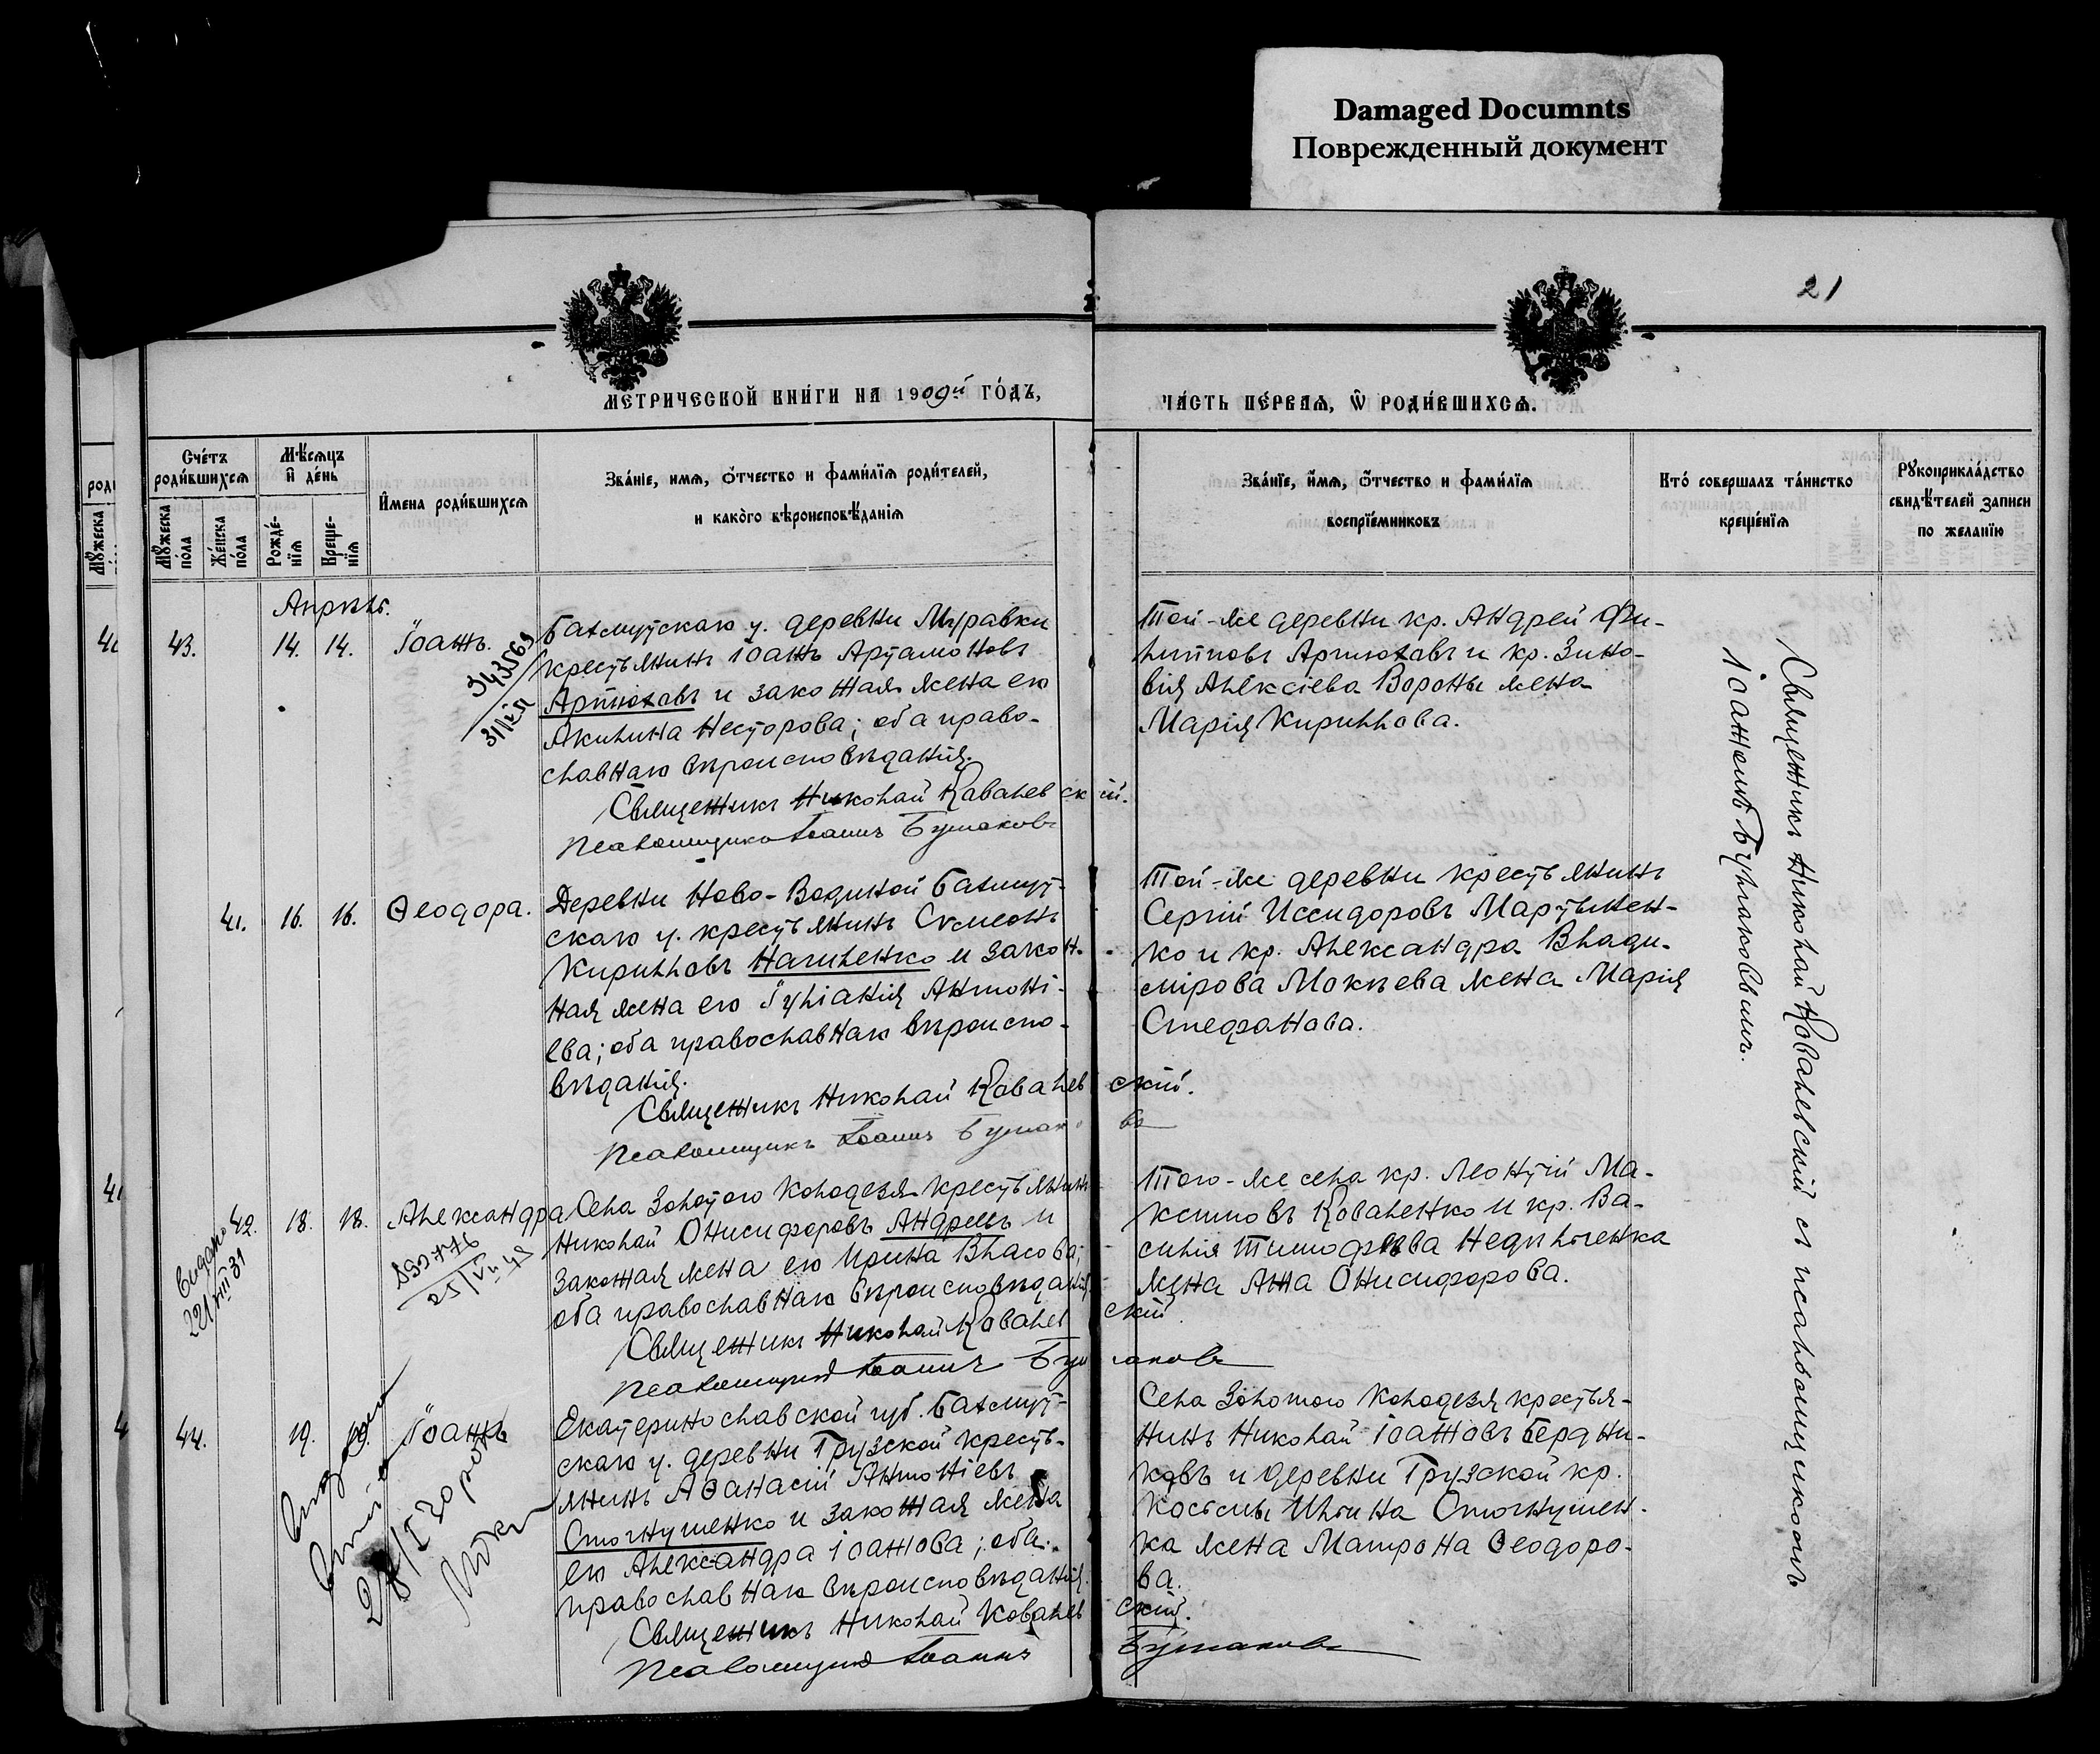 Damaged Documnts
Поврежденный документ
21
МЕТРИЧЕСКОЙ КНИГИ НА 1909й ГОДЪ,
ЧАСТЬ ПЕРВАЯ, Ѿ РОДИВШИХСЯ.
Счетъ родившихся
Мѣсяцъ и день
Имена родившихся
Званіе, имя, отчество и фамилія родителей,
и какого вѣроисповѣданія
Мужеска пола
Женска пола
Рожденія
Крещенія
Званіе, имя, отчество и фамилія
воспріемниковъ
Кто совершалъ таинство
крещенія
Рукоприкладство
свидѣтелей записи
по желанію
Апрѣль.
43. 14. 14. Іоаннъ.
343569
Бахмутскаго у. деревни Муравки
крестьянинъ Іоаннъ Артамоновъ
Артюховъ и законная жена его
Акилина Несторова; оба право-
славнаго вѣроисповѣданія.
Священникъ Николай Ковалевскій.
Псаломщикъ Іоаннъ Булаковъ
Той-же деревни кр. Андрей Фи-
липповъ Артюховъ и кр. Зино-
вія Алексіева Вороны жена
Марія Кириллова.
41. 16. 16. Ѳеодора.
Деревни Ново-Водиной Бахмут-
скаго у. крестьянинъ Симеонъ
Кирилловъ Нагиленко и закон-
ная жена его Іуліанія Антоні-
ева; оба православнаго вѣроиспо-
вѣданія.
Священникъ Николай Ковалевскій.
Псаломщикъ Іоаннъ
Той-же деревни крестьянинъ
Сергій Иссидоровъ Мартынен-
ко и кр. Александра Влади-
мірова Мокѣева жена Марія
Стефанова.
42. 18. 18. Александра
Видано
22/VIII 31
893776
25/VI 48
Села Золотого Колодезя крестьянинъ
Николай Онисифоровъ Андреевъ и
законная жена его Ирина Власова;
оба православнаго вѣроисповѣданія
Священникъ Николай Ковалевскій
Псаломщикъ Іоаннъ
Того-же села кр. Леонтій Ма-
ксимовъ Коваленко и кр. Ва-
силія Тимофѣева Недѣльченка
жена Анна Онисифорова.
44. 19. 19. Іоаннъ
Видано
28/I 30 року
Екатеринославской губ. Бахмут-
скаго у. деревни Грузской кресть-
янинъ Аѳанасій Антоніевъ
Стогнушенко и законная жена
его Александра Іоаннова; оба
православнаго вѣроисповѣданія.
Священникъ Николай Ковалевскій.
Псаломщикъ Іоаннъ
Села Золотого Колодезя крестья-
нинъ Николай Іоанновъ Бердни-
ковъ и деревни Грузской кр.
Космы Ильина Стогнушен-
ка жена Матрона Ѳеодоро-
ва.
Священникъ Николай Ковалевскій съ псаломщикомъ
Іоанномъ